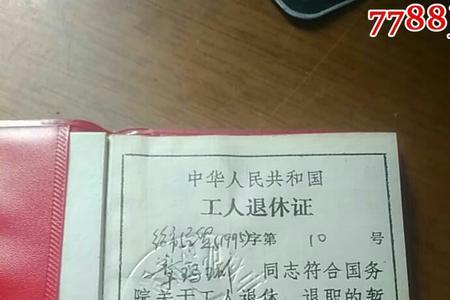 7788
中华人民共和国
工人退休证
(1995)字第 10 号
同志符合国务
院关于工人退休、退职的暂